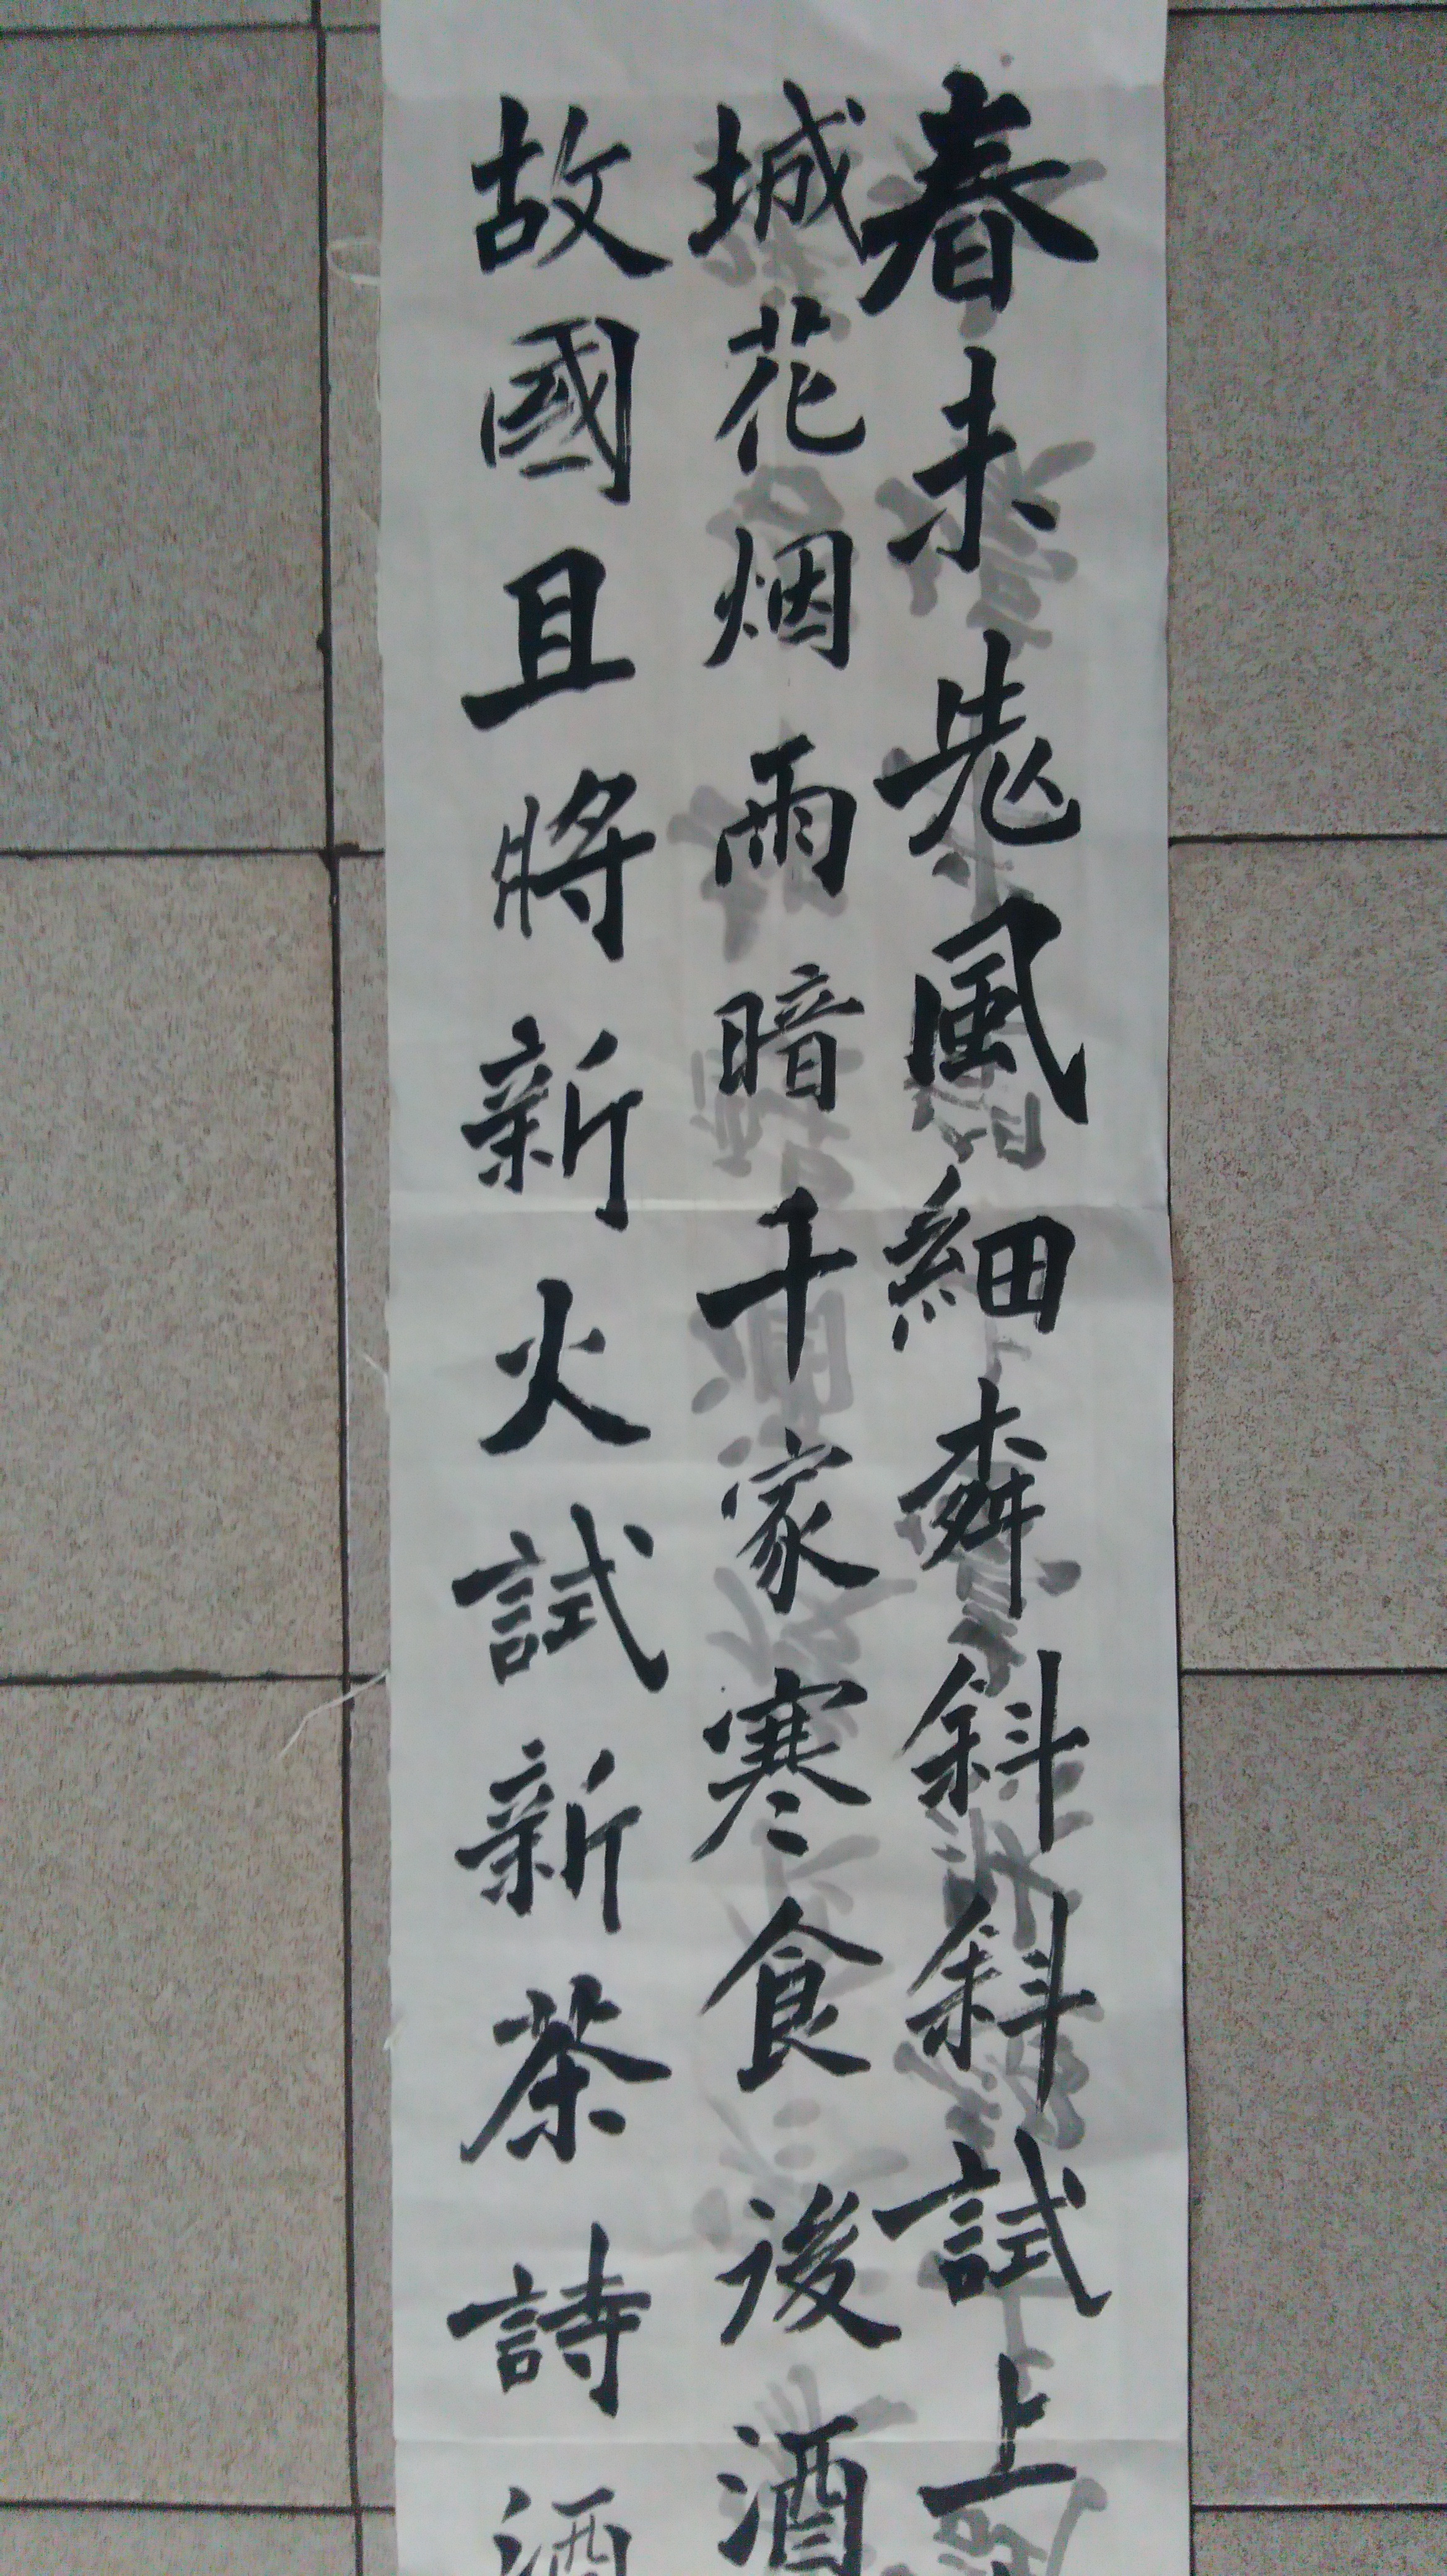 春未老風細柳斜斜試上
城花烟雨暗千家寒食後酒
故國且將新火試新茶詩酒